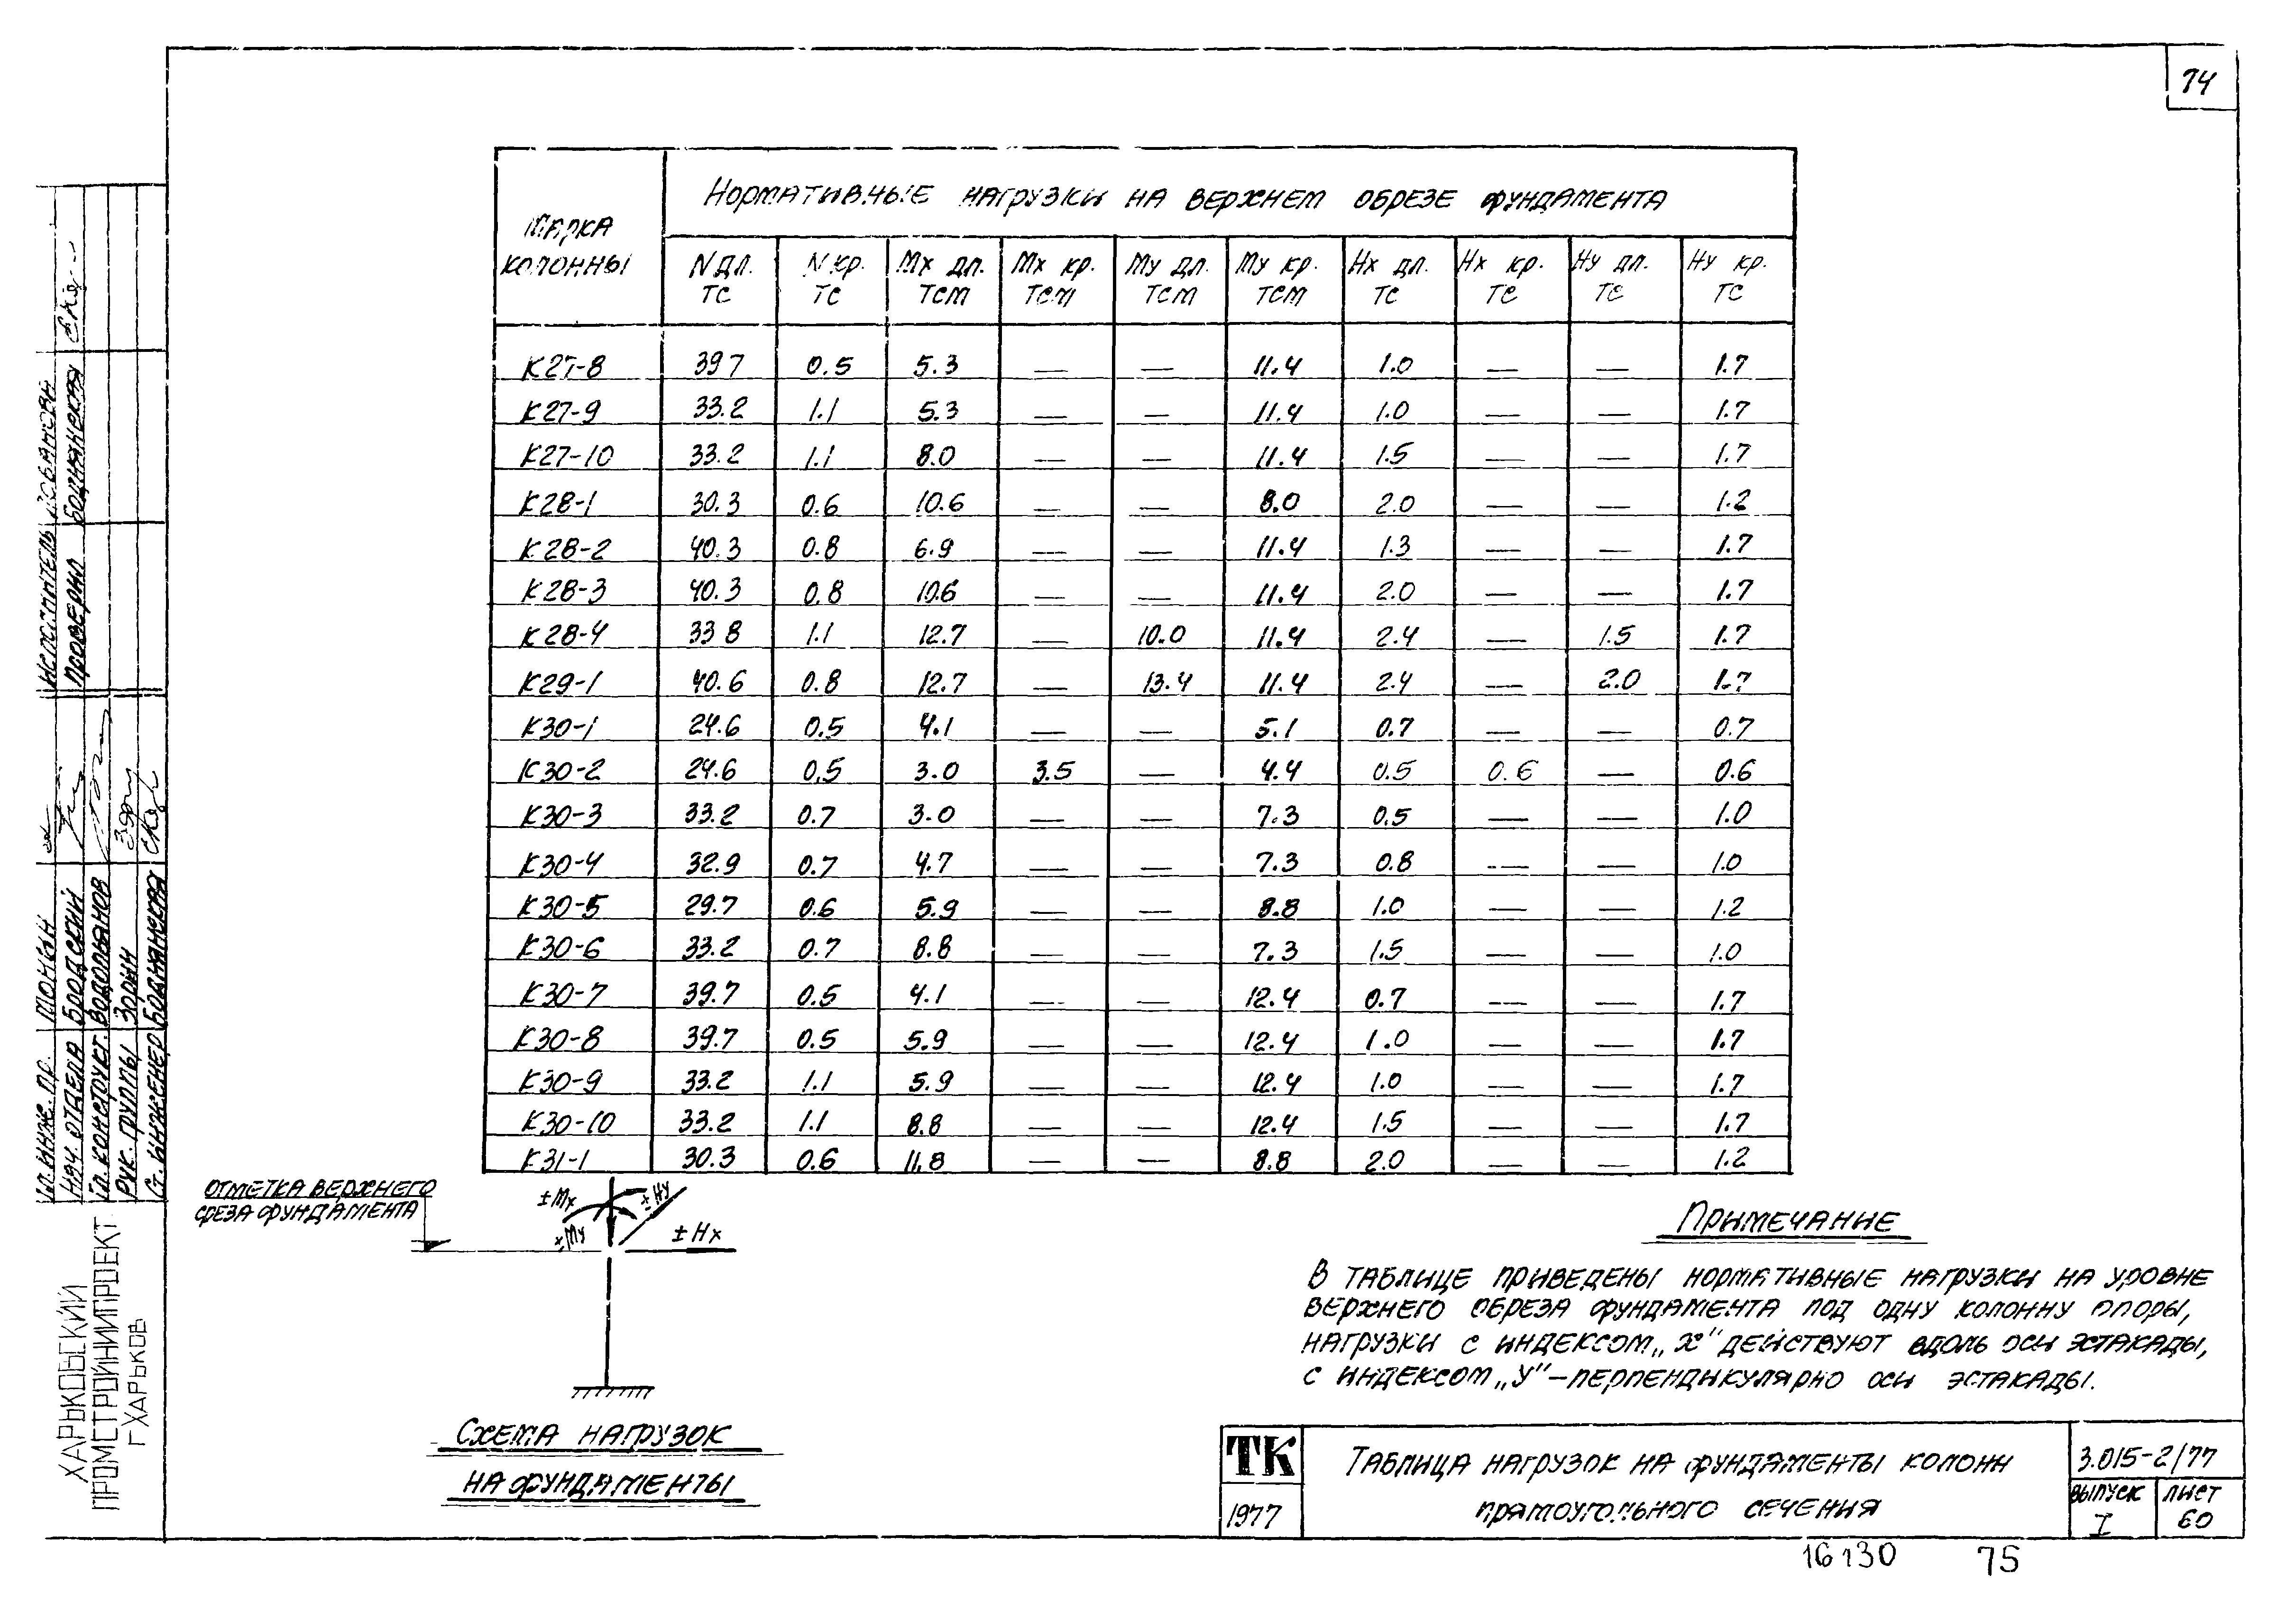 74
Марка колонны
Нормативные нагрузки на верхнем обрезе фундамента
N дл. тс | N кр. тс | Mx дл. тсм | Mx кр. тсм | My дл. тсм | My кр. тсм | Hx дл. тс | Hx кр. тс | Hy дл. тс | Hy кр. тс
К27-8 | 39 7 | 0.5 | 5.3 | — | — | 11.4 | 1.0 | — | — | 1.7
К27-9 | 33.2 | 1.1 | 5.3 | — | — | 11.4 | 1.0 | — | — | 1.7
К27-10 | 33.2 | 1.1 | 8.0 | — | — | 11.4 | 1.5 | — | — | 1.7
К28-1 | 30.3 | 0.6 | 10.6 | — | — | 8.0 | 2.0 | — | — | 1.2
К28-2 | 40.3 | 0.8 | 6.9 | — | — | 11.4 | 1.3 | — | — | 1.7
К28-3 | 40.3 | 0.8 | 10.6 | — | — | 11.4 | 2.0 | — | — | 1.7
К28-4 | 33 8 | 1.1 | 12.7 | — | 10.0 | 11.4 | 2.4 | — | 1.5 | 1.7
К29-1 | 40.6 | 0.8 | 12.7 | — | 13.4 | 11.4 | 2.4 | — | 2.0 | 1.7
К30-1 | 24.6 | 0.5 | 4.1 | — | — | 5.1 | 0.7 | — | — | 0.7
К30-2 | 24.6 | 0.5 | 3.0 | 3.5 | — | 4.4 | 0.5 | 0.6 | — | 0.6
К30-3 | 33.2 | 0.7 | 3.0 | — | — | 7.3 | 0.5 | — | — | 1.0
К30-4 | 32.9 | 0.7 | 4.7 | — | — | 7.3 | 0.8 | — | — | 1.0
К30-5 | 29.7 | 0.6 | 5.9 | — | — | 8.8 | 1.0 | — | — | 1.2
К30-6 | 33.2 | 0.7 | 8.8 | — | — | 7.3 | 1.5 | — | — | 1.0
К30-7 | 39.7 | 0.5 | 4.1 | — | — | 12.4 | 0.7 | — | — | 1.7
К30-8 | 39.7 | 0.5 | 5.9 | — | — | 12.4 | 1.0 | — | — | 1.7
К30-9 | 33.2 | 1.1 | 5.9 | — | — | 12.4 | 1.0 | — | — | 1.7
К30-10 | 33.2 | 1.1 | 8.8 | — | — | 12.4 | 1.5 | — | — | 1.7
К31-1 | 30.3 | 0.6 | 11.8 | — | — | 8.8 | 2.0 | — | — | 1.2
Отметка верхнего
среза фундамента
±Mx
±My
±Hy
±Hx
Схема нагрузок
на фундаменты
Примечание
В таблице приведены нормативные нагрузки на уровне
верхнего обреза фундамента под одну колонну опоры,
нагрузки с индексом „x" действуют вдоль оси эстакады,
с индексом „y" – перпендикулярно оси эстакады.
ТК
1977
Таблица нагрузок на фундаменты колонн
прямоугольного сечения
3.015-2/77
выпуск
I
лист
60
16130
75
Исполнитель
Проверил Боднянская
Гл. инж. пр.
Нач отдела Бродский
Гл. конструкт. Водопьянов
Рук. группы Зорин
Ст. инженер Боднянская
ХАРЬКОВСКИЙ
ПРОМСТРОЙНИИПРОЕКТ
г ХАРЬКОВ